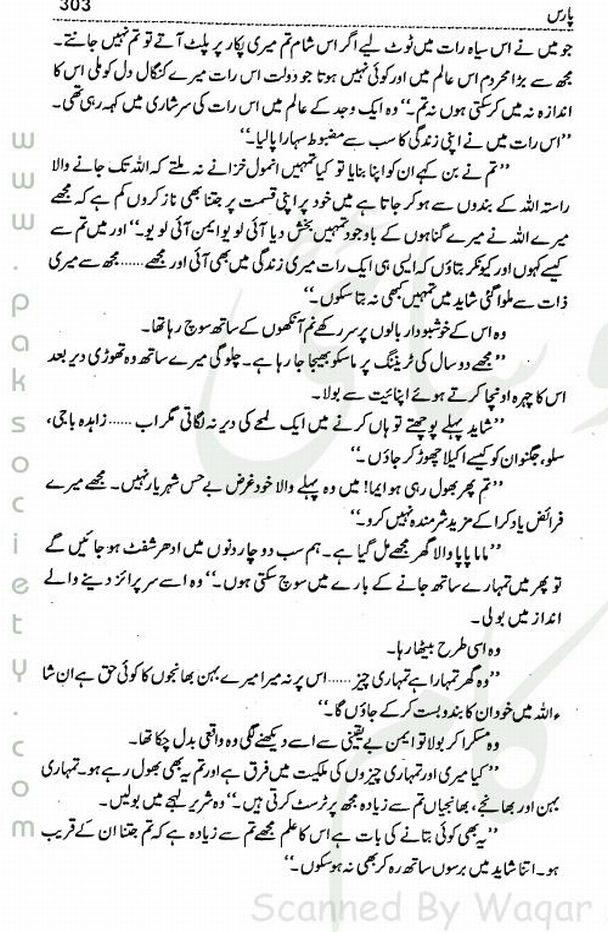 303
پارس
جو میں نے اس سیاہ رات میں ٹوٹ لیے اگر اس شام تم میری پکار پر پلٹ آتے تو تم نہیں جانتے۔
مجھ سے بڑا محروم اس عالم میں اور کوئی نہیں ہوتا جو دولت اس رات میرے کنگال دل کو ملی اس کا
اندازہ نہ میں کر سکتی ہوں نہ تم۔‘‘ وہ ایک وجد کے عالم میں اس رات کی سرشاری میں کہہ رہی تھی۔
’’اس رات میں نے اپنی زندگی کا سب سے مضبوط سہارا پا لیا۔‘‘
’’تم نے بن کہے ان کو اپنا بنایا تو کیا تمہیں انمول خزانے نہ ملتے کہ اللہ تک جانے والا
راستہ اللہ کے بندوں سے ہو کر جاتا ہے میں خود پر اپنی قسمت پر جتنا بھی ناز کروں کم ہے کہ مجھے
میرے اللہ نے میرے گناہوں کے باوجود تمہیں بخش دیا آئی لو یو ایمن آئی لو یو۔‘‘ اور میں تم سے
کیسے کہوں اور کیونکر بتاؤں کہ ایسی ہی ایک رات میری زندگی میں بھی آئی اور مجھے...... مجھ سے میری
ذات سے ملوا گئی شاید میں تمہیں کبھی نہ بتا سکوں۔‘‘
وہ اس کے خوشبودار بالوں پر سر رکھے نم آنکھوں کے ساتھ سوچ رہا تھا۔
’’مجھے دو سال کی ٹریننگ پر ماسکو بھیجا جا رہا ہے۔ چلو گی میرے ساتھ وہ تھوڑی دیر بعد
اس کا چہرہ اونچا کرتے ہوئے اپنائیت سے بولا۔
’’شاید پہلے پوچھتے تو ہاں کرنے میں ایک لمحے کی دیر نہ لگاتی مگر اب ...... زاہدہ باجی،
سلو، جگنو ان کو کیسے اکیلا چھوڑ کر جاؤں۔‘‘
’’تم پھر بھول رہی ہو ایما! میں وہ پہلے والا خود غرض بے حس شہریار نہیں۔ مجھے میرے
فرائض یاد کرا کے مزید شرمندہ نہیں کرو۔‘‘
’’ماما پاپا والا گھر مجھے مل گیا ہے۔ ہم سب دو چار دنوں میں ادھر شفٹ ہو جائیں گے
تو پھر میں تمہارے ساتھ جانے کے بارے میں سوچ سکتی ہوں۔‘‘ وہ اسے سرپرائز دینے والے
انداز میں بولی۔
وہ اسی طرح بیٹھا رہا۔
’’وہ گھر تمہارا ہے تمہاری چیز ...... اس پر نہ میرا میرے بہن بھانجوں کا کوئی حق ہے ان شا
ء اللہ میں خود ان کا بندوبست کر کے جاؤں گا۔‘‘
وہ مسکرا کر بولا تو ایمن بے یقینی سے اسے دیکھنے لگی وہ واقعی بدل چکا تھا۔
’’کیا میری اور تمہاری چیزوں کی ملکیت میں فرق ہے اور تم یہ بھی بھول رہے ہو۔ تمہاری
بہن اور بھانجے، بھانجیاں تم سے زیادہ مجھ پر ٹرسٹ کرتی ہیں۔‘‘ وہ شریر لہجے میں بولیں۔
’’یہ بھی کوئی بتانے کی بات ہے اس کا علم مجھے تم سے زیادہ ہے کہ تم جتنا ان کے قریب
ہو۔ اتنا شاید میں برسوں ساتھ رہ کر بھی نہ ہو سکوں۔‘‘
www.paksociety.com
Scanned By Waqar